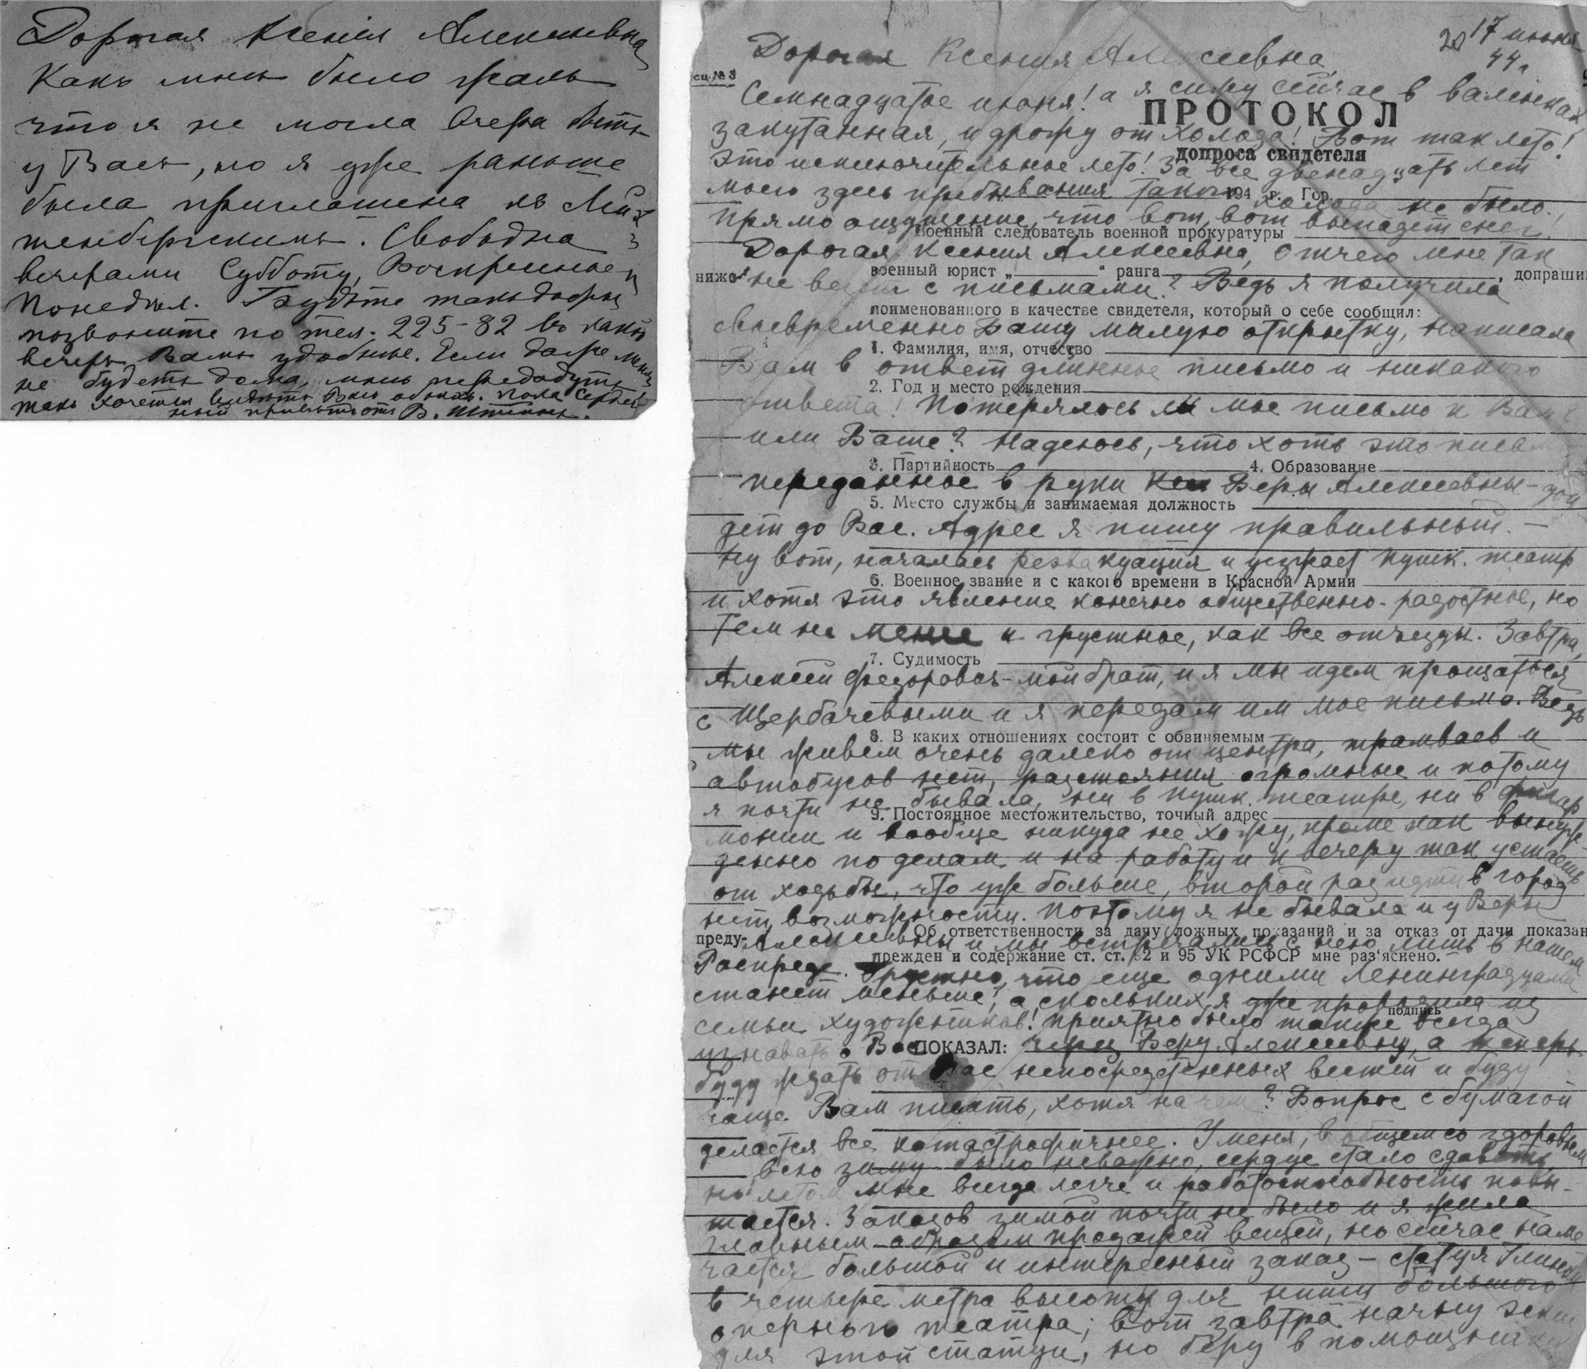 Дорогая Ксенiя Алексеевна,
Какъ мнѣ было жаль
что я не могла вчера быть
у Васъ, но я уже раньше
была приглашена къ Лих
тенбергскимъ. Свободна
вечерами Субботу, Воскресенье и
Понедѣл. Будьте такъ добры
позвоните по тел. 225-82 въ какой
вечеръ Вамъ удобнѣе. Если даже меня
не будетъ дома, мнѣ передадутъ
такъ хочется видѣть Васъ обоихъ. Пока сердеч
ный привѣтъ отъ В.
20 17 июня
44 г.
Дорогая Ксения Алексеевна,
Семнадцатое июня! а я сижу сейчас в валенках
ПРОТОКОЛ
закутанная, и дрожу от холода! Вот так лето!
допроса свидетеля
Это исключительное лето! За все двенадцать лет
моего здесь пребывания такого холода не было!
194 г. Гор.
Прямо ощущение, что вот, вот выпадет снег!
Военный следователь военной прокуратуры
Дорогая Ксения Алексеевна, отчего мне так
военный юрист „ “ ранга , допраши
ниже
не везет с письмами? Ведь я получила
поименованного в качестве свидетеля, который о себе сообщил:
своевременно Вашу милую открытку, написала
1. Фамилия, имя, отчество
Вам в ответ длинное письмо и никакого
2. Год и место рождения
ответа! Потерялось ли мое письмо к Вам
или Ваше? Надеюсь, что хоть это письмо
3. Партийность 4. Образование
переданное в руки Веры Алексеевны - дой
5. Место службы и занимаемая должность
дет до Вас. Адрес я пишу правильный. —
Ну вот, началась реэвакуация и уезжает Пушк. театр
6. Военное звание и с какого времени в Красной Армии
и хотя это явление конечно общественно-радостное, но
тем не менее и грустное, как все отъезды. Завтра,
7. Судимость
Алексей Федорович - мой брат, и я мы идем прощаться
с Щербачевыми и я передам им мое письмо. Ведь
8. В каких отношениях состоит с обвиняемым
мы живем очень далеко от центра, трамваев и
автобусов нет, расстояния огромные и потому
я почти не бывала, ни в Пушк. театре, ни в филар
9. Постоянное местожительство, точный адрес
монии и вообще никуда не хожу, кроме как вынуж-
денно по делам и на работу и к вечеру так устаешь
от ходьбы, что уж больше, второй раз идти в город
нет возможности. Поэтому я не бывала и у Веры
Об ответственности за дачу ложных показаний и за отказ от дачи показан
преду-
Алексеевны и мы встречались с нею лишь в нашем
прежден и содержание ст. ст. 92 и 95 УК РСФСР мне раз'яснено.
Распреде. Грустно, что еще одними Ленинградцами
станет меньше, а скольких я уже проводила из
подпись
семьи художников! Приятно было также всегда
узнавать о Вас через Веру Алексеевну, а теперь
ПОКАЗАЛ:
буду ждать от Вас непосредственных вестей и буду
чаще Вам писать, хотя на чем? Вопрос с бумагой
делается все катастрофичнее. У меня, в общем со здоровьем
всю зиму было неважно, сердце стало сдавать,
но летом мне всегда легче и работоспособность повы-
шается. Заказов зимой почти не было и я жила
главным образом продажей вещей, но сейчас наме
чается большой и интересный заказ - статуя Глинки
в четыре метра высоты для ниши большого
оперного театра; вот завтра начну эскиз
для этой статуи, но беру в помощники